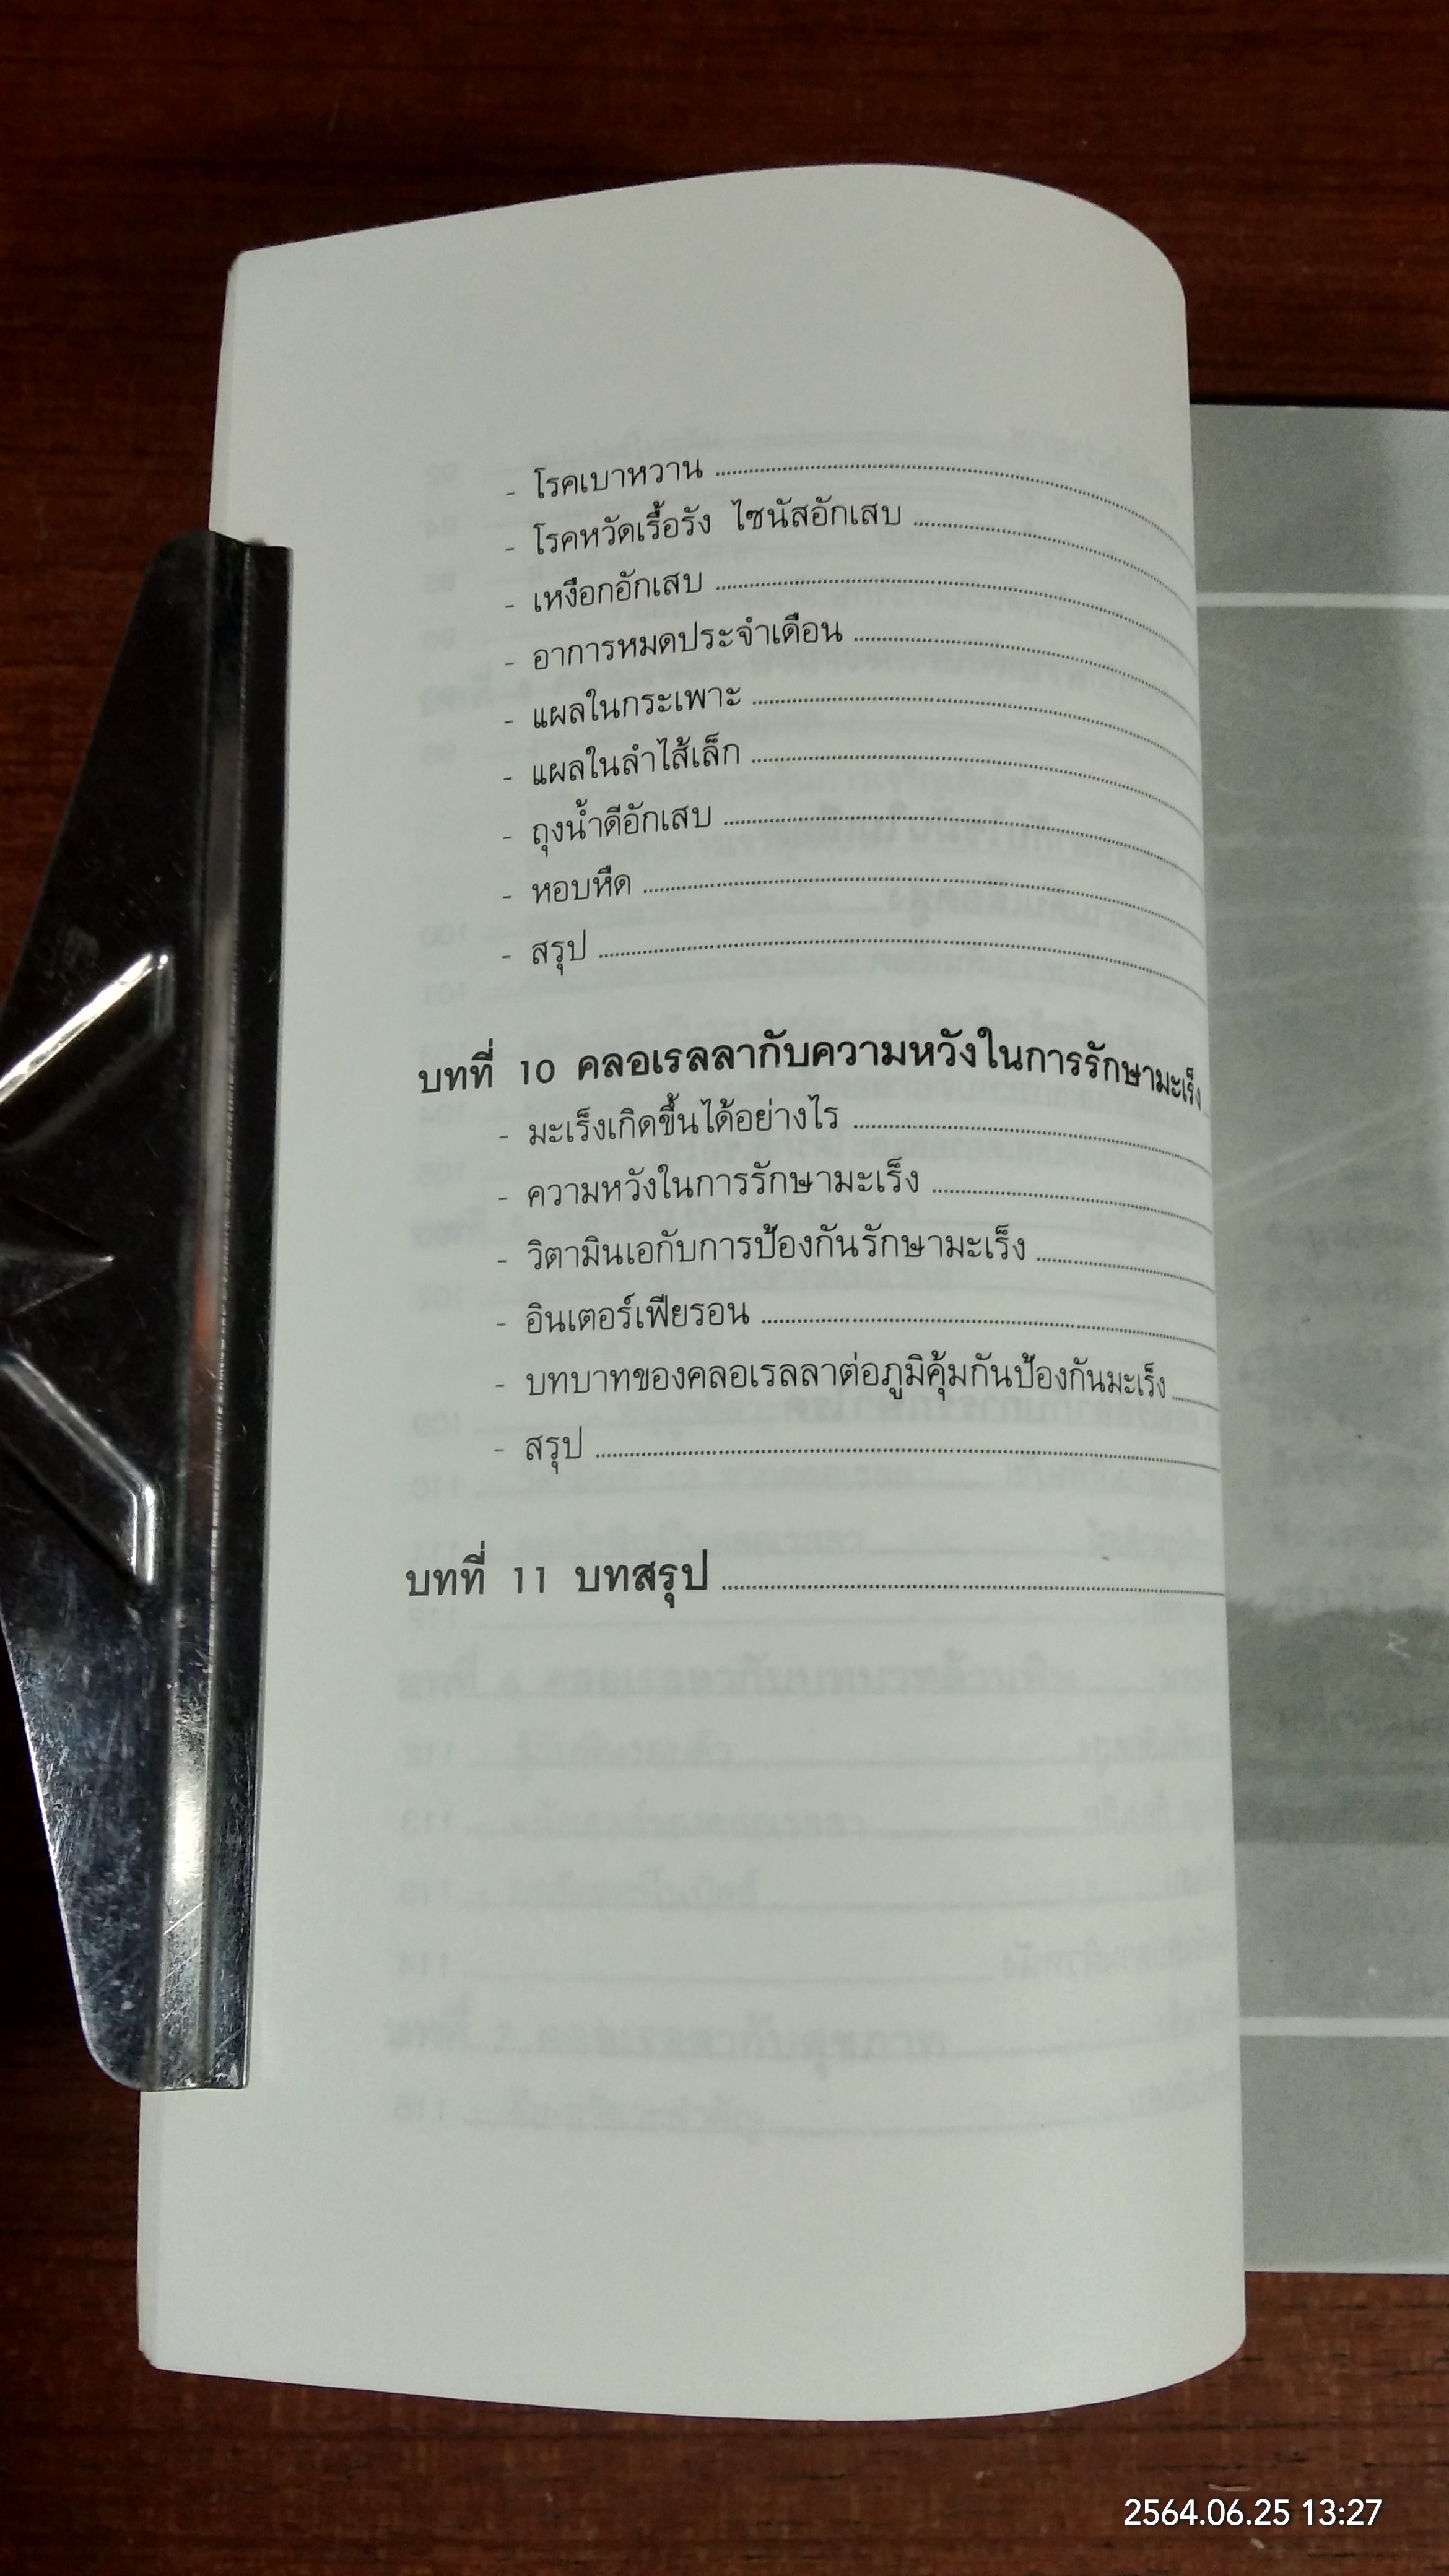 - โรคเบาหวาน
- โรคหวัดเรื้อรัง ไซนัสอักเสบ
- เหงือกอักเสบ
- อาการหมดประจำเดือน
- แผลในกระเพาะ
- แผลในลำไส้เล็ก
- ถุงน้ำดีอักเสบ
- หอบหืด
- สรุป
บทที่ 10 คลอเรลลากับความหวังในการรักษามะเร็ง
- มะเร็งเกิดขึ้นได้อย่างไร
- ความหวังในการรักษามะเร็ง
- วิตามินเอกับการป้องกันรักษามะเร็ง
- อินเตอร์เฟียรอน
- บทบาทของคลอเรลลาต่อภูมิคุ้มกันป้องกันมะเร็ง
- สรุป
บทที่ 11 บทสรุป
2564.06.25 13:27